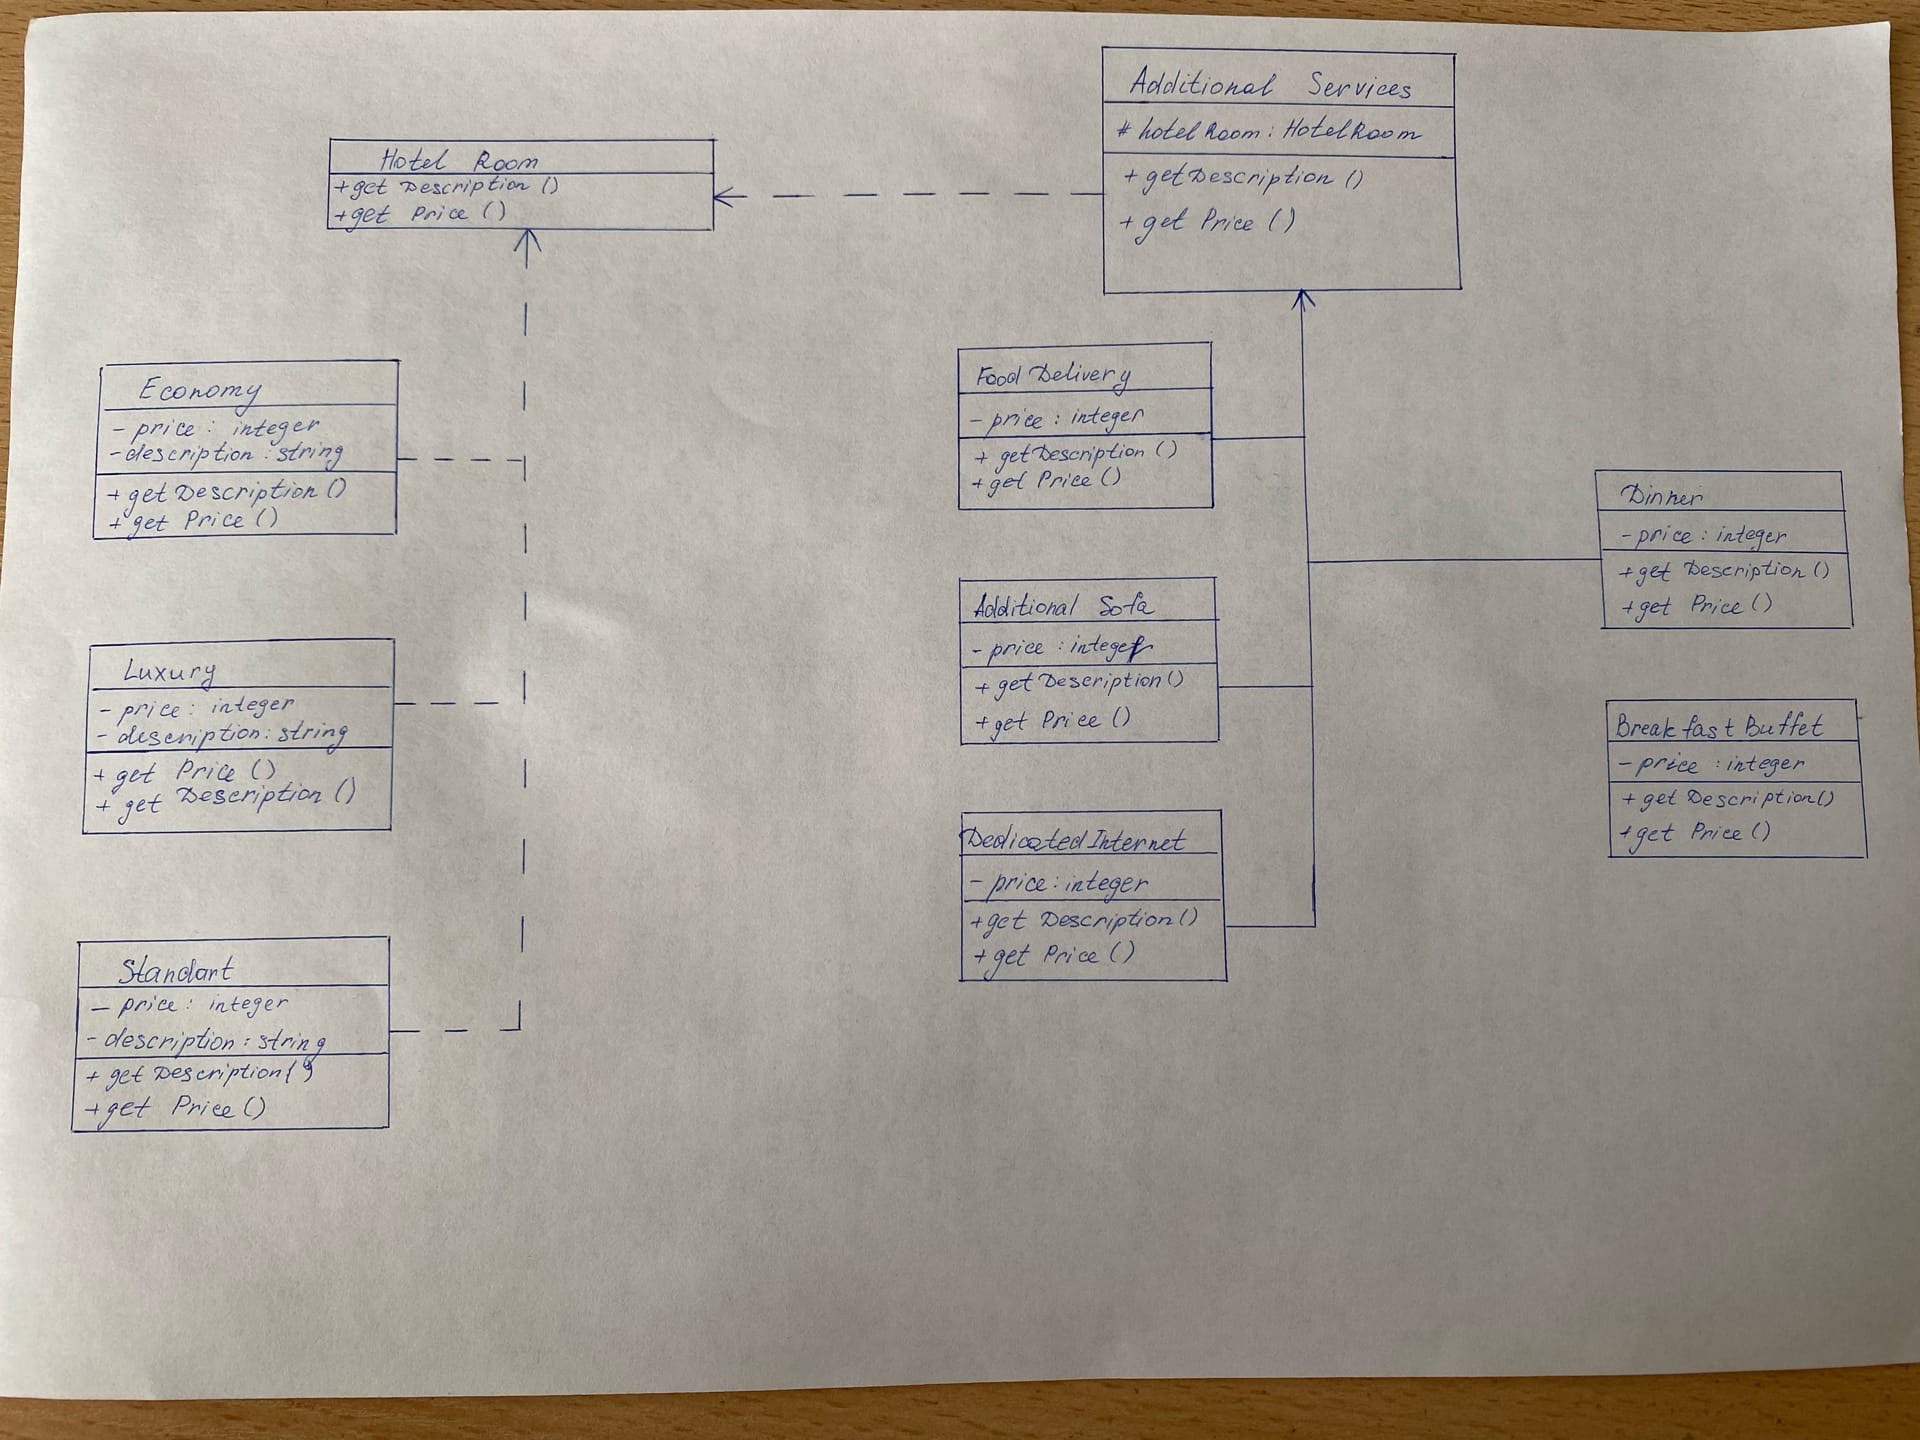 Hotel Room
+get Description ()
+get Price ()
Additional Services
# hotelRoom: HotelRoom
+ getDescription ()
+ get Price ()
Economy
- price: integer
-description: string
+ get Description ()
+ get Price ()
Luxury
- price: integer
- description: string
+ get Price ()
+ get Description ()
Standart
- price: integer
- description: string
+ get Description()
+get Price ()
Food Delivery
- price: integer
+ getDescription ()
+ get Price ()
Additional Sofa
- price: integer
+ get Description()
+ get Price ()
Dedicated Internet
- price: integer
+get Description()
+ get Price ()
Dinner
- price: integer
+get Description ()
+get Price ()
Breakfast Buffet
- price: integer
+ get Description()
+get Price ()